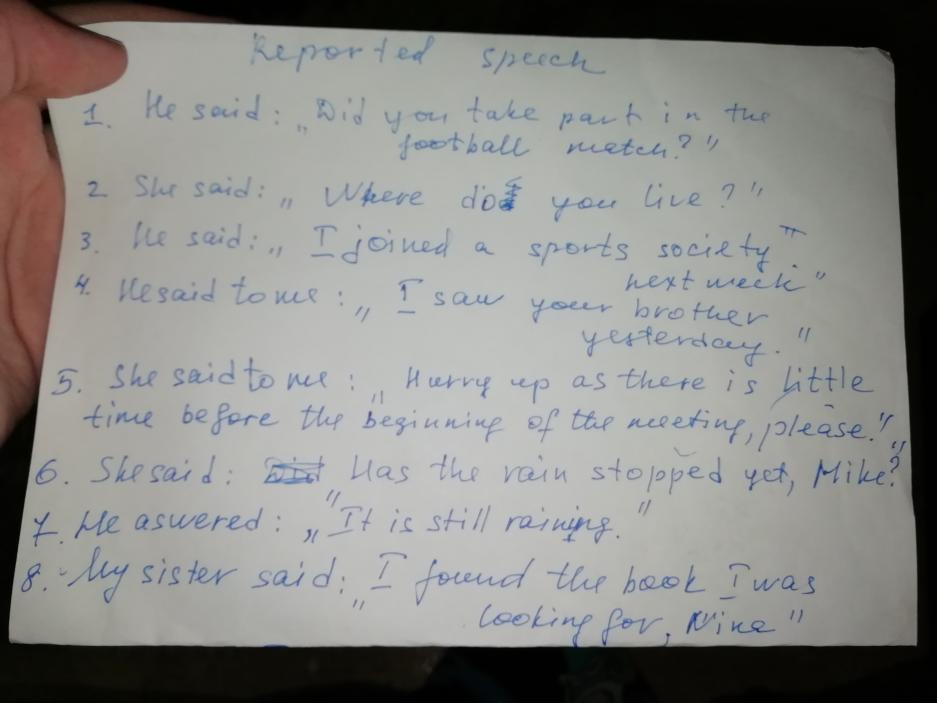 Reported speech
1. He said: „Did you take part in the
football match?"
2 She said: „Where do you live?"
3. He said: „I joined a sports society
next week"
4. He said to me: „I saw your brother
yesterday."
5. She said to me: „Hurry up as there is little
time before the beginning of the meeting, please."
6. She said: „Has the rain stopped yet, Mike?"
7. He aswered: „It is still raining."
8. My sister said: „I found the book I was
looking for, Nina"